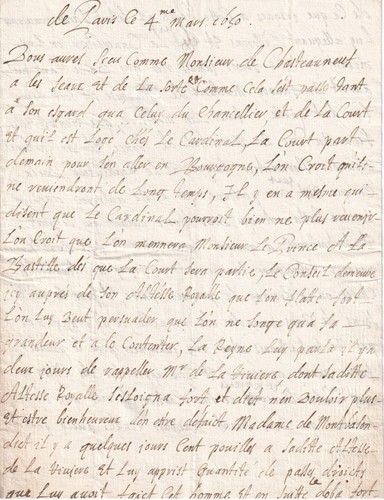 de Paris ce 4.me mars 1650.
Vous aurés sceu Comme Monsieur de Chasteauneuf
a les seaux Et de La sorte et Comme Cela s'est passé tant
a son esgard qua Celuy du Chancellier et de la Court
Et quil est Logé chés Le Cardinal, La Court part
demain pour sen aller en Bourgogne, Lon Croit quils
ne reviendront de Long temps, Il y en a mesme qui
disent que Le Cardinal pourroit bien ne plus revenir
Lon Croit que Lon mennera Monsieur Le Prince A La
Bastille des que La Court sera partie, Le Conseil demeure
icy aupres de son Altesse Royalle que Lon flatte fort
Lon Luy Veut persuader que Lon ne songe qua sa
grandeur et a le Contenter, La Reyne Luy parla il y a
deux jours de rappeller Mr. de La Riviere, dont sadite
Altesse Royalle sesloigna fort et dict nen Vouloir plus
Et estre bienheureux den estre defait, Madame de
dict il y a quelques jours Cent pouilles a sadite Altesse
de La Riviere Et Luy apprist Quantité de
que Luy avoit faict Cet homme, et en suitte fort